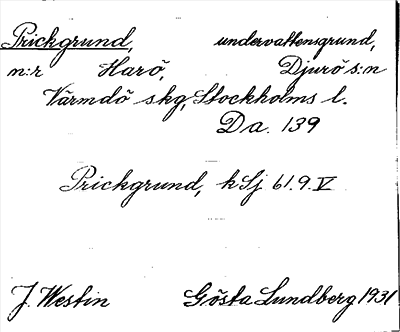 Prickgrund, undervattensgrund,
n:r Harö, Djurö s:n
Värmdö skg, Stockholms l.
Da. 139
Prickgrund, h Sj 61.9.V
J. Westin Gösta Lundberg 1931